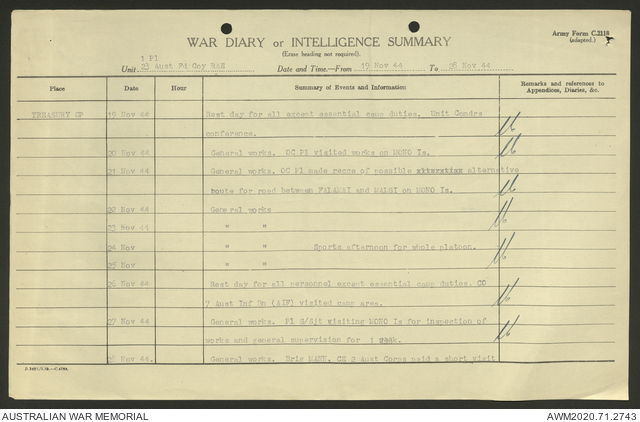 Army Form C.2118
(adapted.)
WAR DIARY or INTELLIGENCE SUMMARY
(Erase heading not required).
1 Pl
Unit 23 Aust Fd Coy RAE Date and Time.—From 19 Nov 44 To 28 Nov 44
Place Date Hour Summary of Events and Information Remarks and references to
Appendices, Diaries, &c.
TREASURY GP 19 Nov 44 Rest day for all except essential camp duties. Unit Comdrs
conference.
20 Nov 44 General works. OC Pl visited works on MONO Is.
21 Nov 44 General works. OC Pl made recce of possible alternative
route for road between FALAMAI and MALSI on MONO Is.
22 Nov 44 General works
23 Nov 44 " "
24 Nov " " Sports afternoon for whole platoon.
25 Nov " "
26 Nov 44 Rest day for all personnel except essential camp duties. CO
7 Aust Inf Bn (AIF) visited camp area.
27 Nov 44 General works. Pl S/Sjt visiting MONO Is for inspection of
works and general supervision for 1 week.
28 Nov 44. General works. Brig MANN, CE 2 Aust Corps paid a short visit
AUSTRALIAN WAR MEMORIAL AWM2020.71.2743